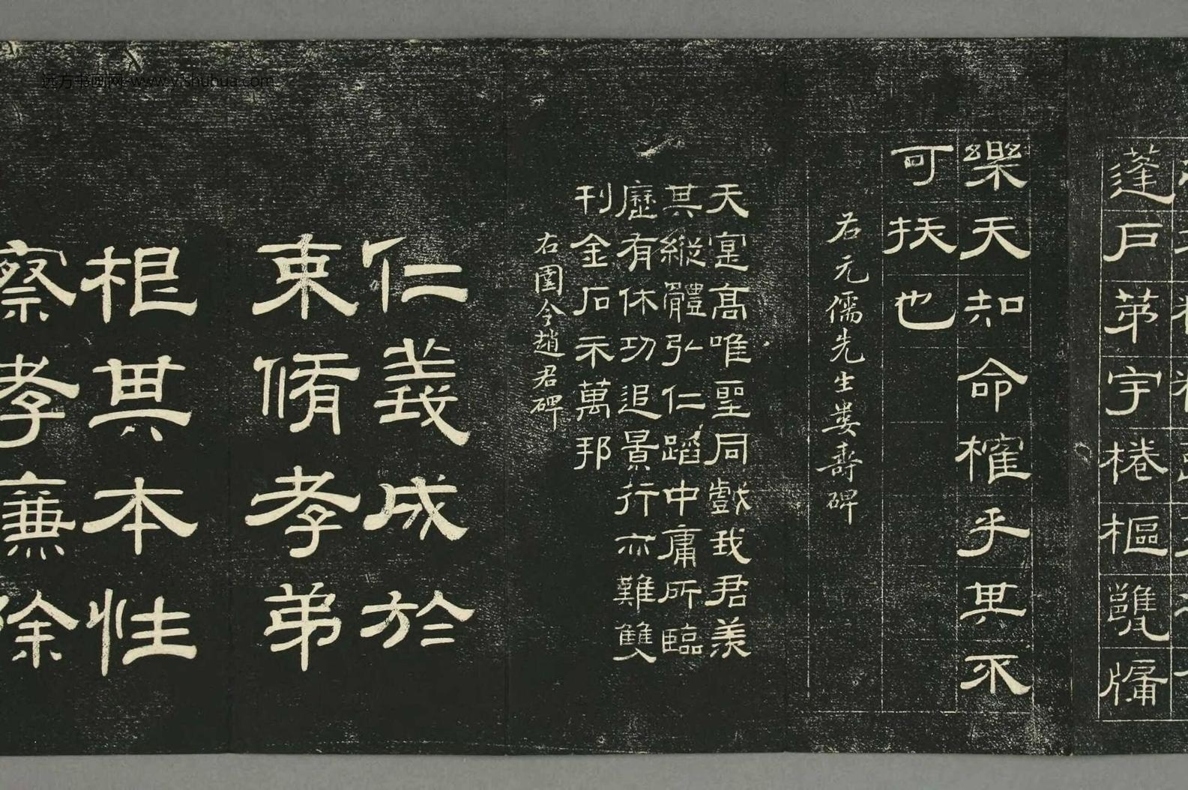 蓬戶茅宇棬樞甕牖
樂天知命榷乎其不
可拔也
右元儒先生婁壽碑
天寔高唯聖同戲我君羨
其縱體弘仁蹈中庸所臨
歷有休功追景行亦難雙
刊金石示萬邦
右圉令趙君碑
仁義成於
束脩孝弟
根其本性
察孝廉除
远方书画网